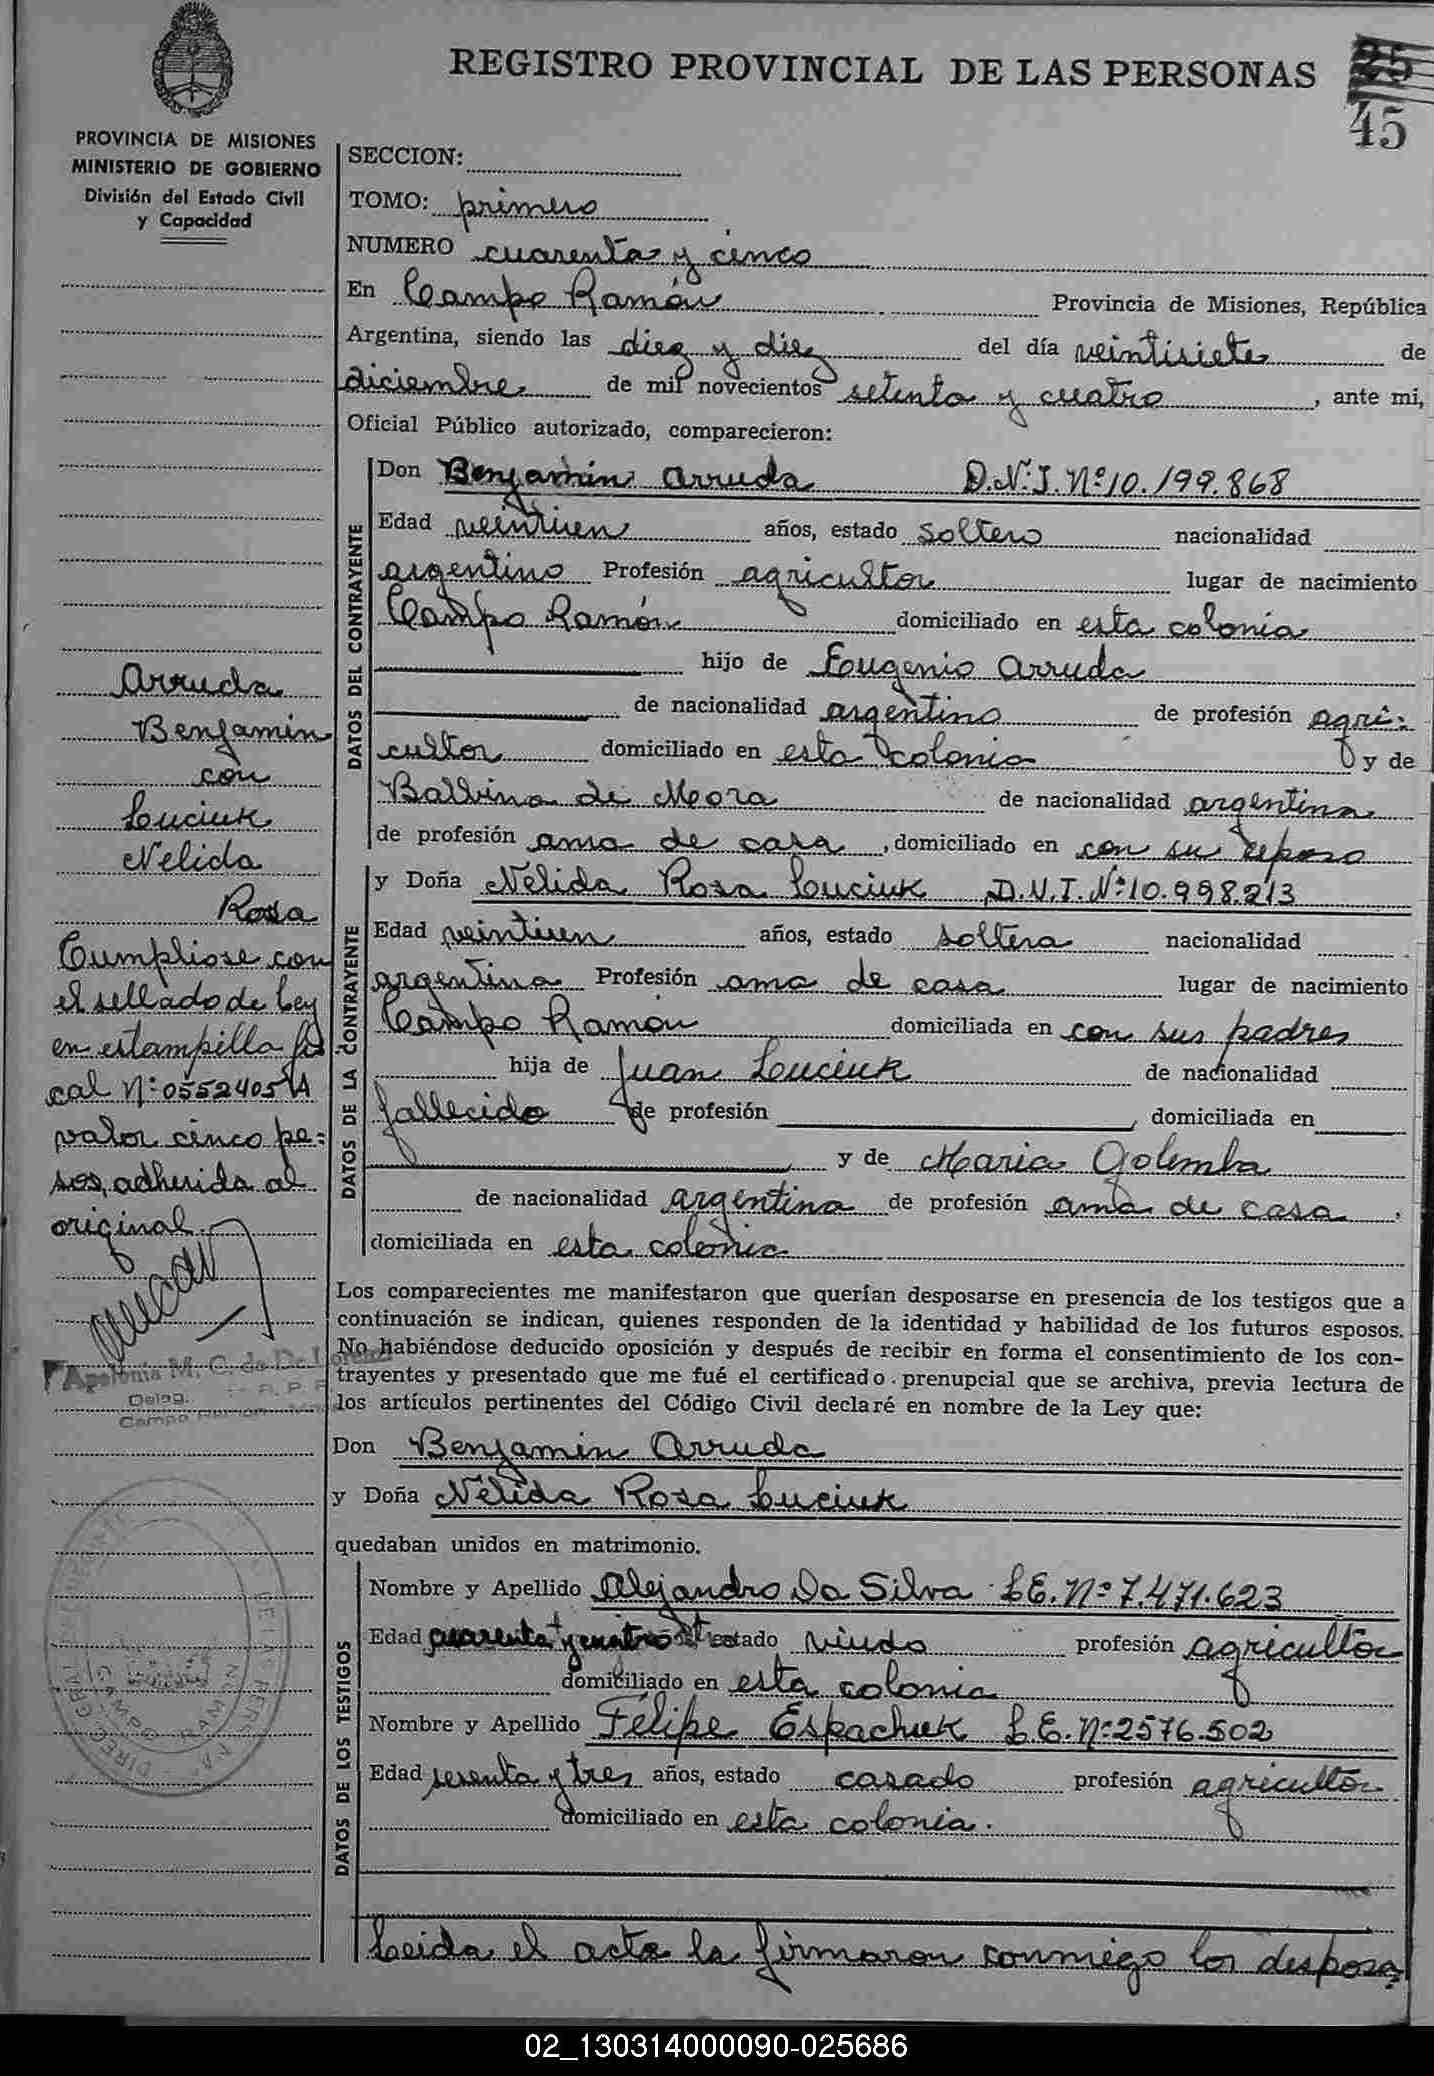 REGISTRO PROVINCIAL DE LAS PERSONAS
25
45
PROVINCIA DE MISIONES
MINISTERIO DE GOBIERNO
División del Estado Civil
y Capacidad
SECCION:
TOMO: primero
NUMERO cuarenta y cinco
En Campo Ramón Provincia de Misiones, República
Argentina, siendo las diez y diez del día veintisiete de
diciembre de mil novecientos setenta y cuatro, ante mi,
Oficial Público autorizado, comparecieron:
DATOS DEL CONTRAYENTE
Don Benjamin Arruda D.N.I. Nº 10.199.868
Edad veintiun años, estado soltero nacionalidad
argentino Profesión agricultor lugar de nacimiento
Campo Ramón domiciliado en esta colonia
hijo de Eugenio Arruda
de nacionalidad argentino de profesión agri-
cultor domiciliado en esta colonia y de
Balbina de Mora de nacionalidad argentina
de profesión ama de casa, domiciliado en con su esposo
DATOS DE LA CONTRAYENTE
y Doña Nélida Rosa Luciuk D.N.I. Nº 10.998.213
Edad veintiun años, estado soltera nacionalidad
argentina Profesión ama de casa lugar de nacimiento
Campo Ramón domiciliada en con sus padres
hija de Juan Luciuk de nacionalidad
fallecido de profesión domiciliada en
y de Maria Golemba
de nacionalidad argentina de profesión ama de casa,
domiciliada en esta colonia
Arruda
Benjamin
con
Luciuk
Nelida
Rosa
Cumpliose con
el sellado de ley
en estampilla fis
cal Nº 0552405 A
valor cinco pe-
sos, adherida al
original.
Apolonia M. C. de De
Deleg. R. P. P.
Campo Ramón
Los comparecientes me manifestaron que querían desposarse en presencia de los testigos que a
continuación se indican, quienes responden de la identidad y habilidad de los futuros esposos.
No habiéndose deducido oposición y después de recibir en forma el consentimiento de los con-
trayentes y presentado que me fué el certificado prenupcial que se archiva, previa lectura de
los artículos pertinentes del Código Civil declaré en nombre de la Ley que:
Don Benjamin Arruda
y Doña Nélida Rosa Luciuk
quedaban unidos en matrimonio.
DATOS DE LOS TESTIGOS
Nombre y Apellido Alejandro Da Silva L.E. Nº 7.471.623
Edad cuarenta y cuatro estado viudo profesión agricultor
domiciliado en esta colonia
Nombre y Apellido Felipe Espachuk L.E. Nº 2576.502
Edad sesenta y tres años, estado casado profesión agricultor
domiciliado en esta colonia.
CAMPO RAMON
Leida el acta la firmaron conmigo los desposa
02_130314000090-025686